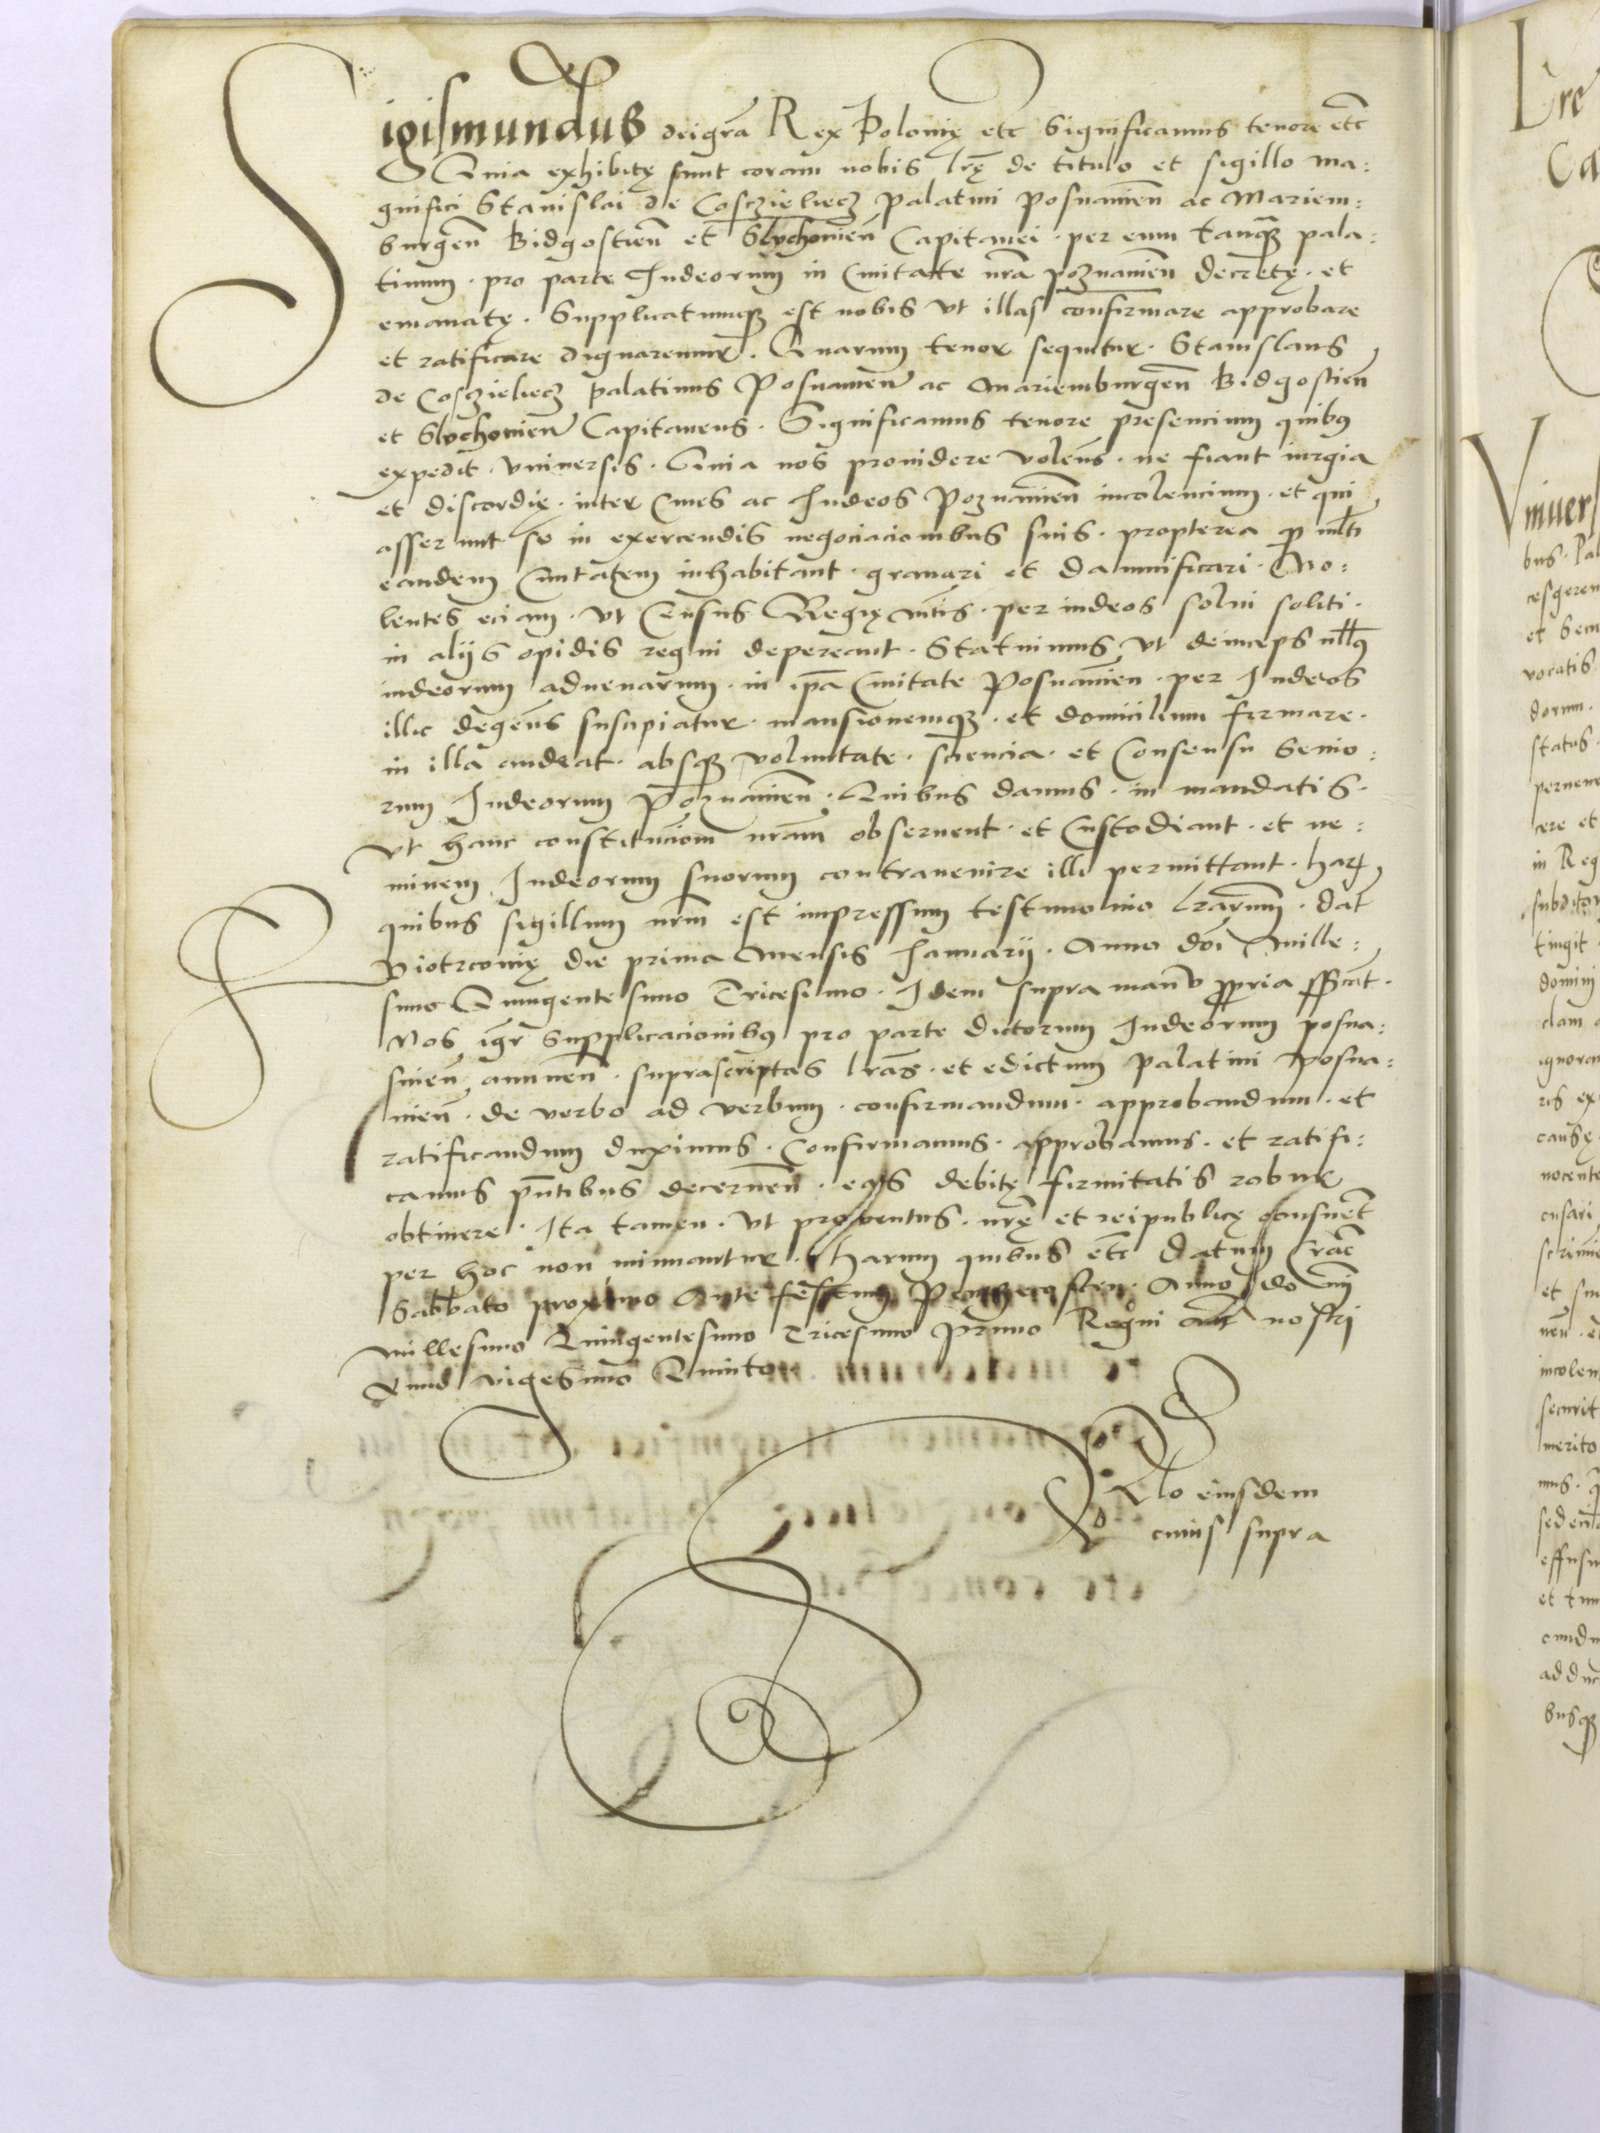 Sigismundus dei grã Rex Polonię etc Significamus tenore etc
Quia exhibitę sunt coram nobis lrę de titulo et sigillo ma:
gnifici Stanislai de Cosczieliecz Palatini Posnanień ac Mariem:
burgeń Bidgostień et Slvchovień Capitanei · per eum tanq̃ pala:
tinum · pro parte Iudeorum in Ciuitate nrã poznanień decretę · et
emanatę · Supplicatumqȝ est nobis vt illas confirmare approbare
et ratificare dignaremur · Quarum tenor sequitur · Stanislaus
de Cosczieliecz Palatinus Posnanień ac Mariemburgeń Bidgostień
et Slvchovień Capitaneus · Significamus tenore presencium quibus
expedit · vniuersis · Quia nos prouidere volens · ne fiant iurgia
et discordię · inter Ciues ac Iudeos Poznanień incolencium · et qui
asserunt se in exercendis negociacionibus suis · propterea ꝙ mlti
eandem Ciuitatem inhabitant · grauari et damnificari · No:
lentes eciam · vt Census Regię mtis · per iudeos solui soliti ·
in alijs opidis regni depereant · Statuimus vt deinceps nllus
iudeorum aduenarum · in ipã Ciuitate Posnanień · per Iudeos
illic degeñs suscipiatur · mansionemqȝ · et domicilium firmare ·
in illa audeat · absqȝ voluntate · sciencia · et Consensu Senio:
rum Iudeorum Poznanień · Quibus damus · in mandatis ·
vt hanc constitucioñ nrãm obseruent · et Custodiant · et ne:
minem Iudeorum suorum contrauenire illi permittant · harꝝ
quibus sigillum nrm̃ est impressum testimonio lrarum · dat̃
Piotrconię die prima Mensis Ianuarij · Anno doĩ Mille:
simo Quingentesimo Tricesimo · Idem supra manu ꝓpria sspt ·
Nos igr̃ supplicacionibus pro parte dictorum Iudeorum posna:
nień annueñ · suprascriptas lrãs · et edictum Palatini Posna:
nień · de verbo ad verbum · confirmandum · approbandum · et
ratificandum duximus · Confirmamus · approbamus · et ratifi:
camus pñtibus decerneñ · eas debitę firmitatis robur
obtinere · Ita tamen · vt prouentus · nrę et reipublicę consuet̃
per hoc non minuantur · harum quibus etc Datum Crac̃
Sabbato proximo Ante festum Penthecosten · Anno domini
Millesimo Quingentesimo Tricesimo Primo Regni aut̃ nostri
Anno vigesimo Quinto
Rlo eiusdem
cuius supra